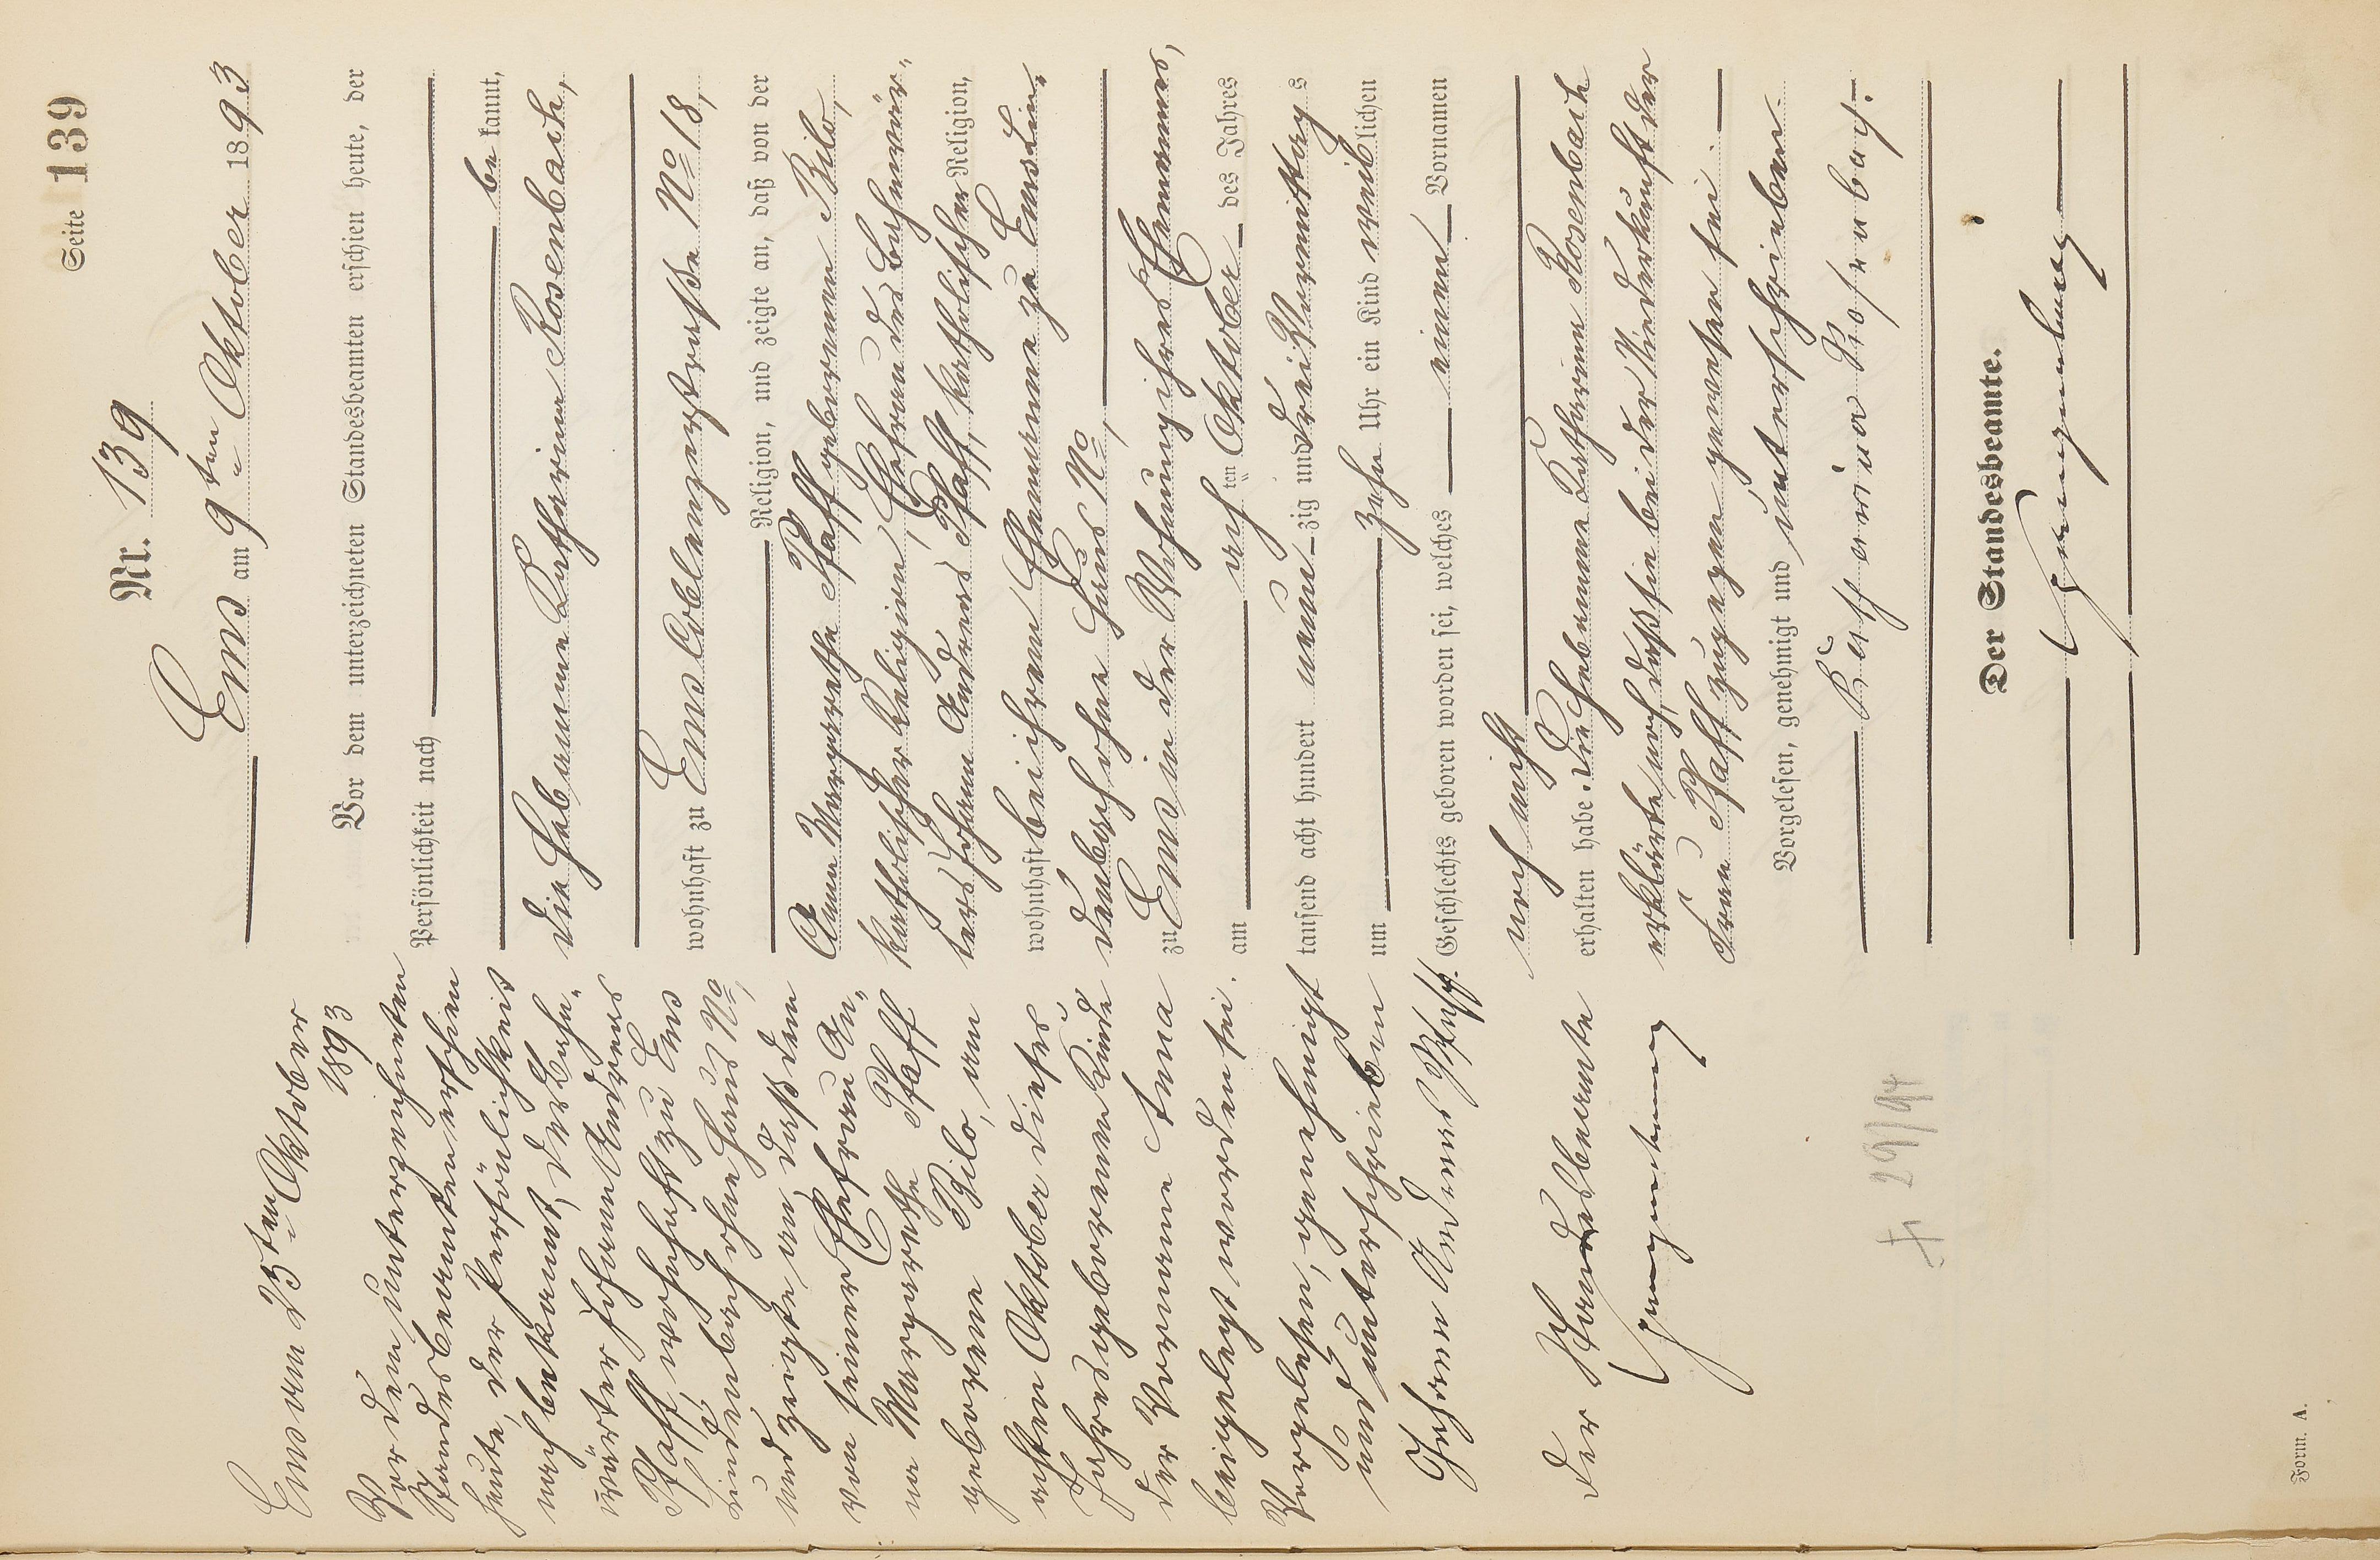 Seite 139
Nr. 139
Ems am 9ten Oktober 1893
Vor dem unterzeichneten Standesbeamten erschien heute, der
Persönlichkeit nach
bekannt,
die Hebamme Katharina Rosenbach,
wohnhaft zu Ems Coblenzerstraße No 18,
Religion, und zeigte an, daß von der
Anna Margarethe Pfaff geborenen Bilo,
katholischer Religion, Ehefrau des Bahnwär-
ters Johann Andreas Pfaff, katholischer Religion,
wohnhaft bei ihrem Ehemanne zu Ems Lin-
denbachsohne Haus No,
zu Ems in der Wohnung ihres Ehemannes,
am achten Oktober des Jahres
tausend acht hundert neunzig und drei Vormittags
um zehn Uhr ein Kind weiblichen
Geschlechts geboren worden sei, welches einen Vornamen
noch nicht
erhalten habe. Die Hebamme Katharina Rosenbach
erklärte noch, daß sie bei der Niederkunft der
Frau Pfaff zugegen gewesen sei.
Vorgelesen, genehmigt und unterschrieben
Katharina Rosenbach.
Der Standesbeamte.
Ems am 23ten Oktober
1893
Vor dem unterzeichneten
Standesbeamten erschien
heute, der Persönlichkeit
nach bekannt, der Bahn-
wärter Johann Andreas
Pfaff, wohnhaft zu Ems
Lindenbachsohne Haus No,
und zeigte an, daß dem
von seiner Ehefrau An-
na Margarethe Pfaff
geborene Bilo, am
achten Oktober dieses
Jahres geborenen Kinde
der Vorname Anna
beigelegt worden sei.
Vorgelesen, genehmigt
und unterschrieben
Johann Andreas Pfaff.
Der Standesbeamte
Form. A.